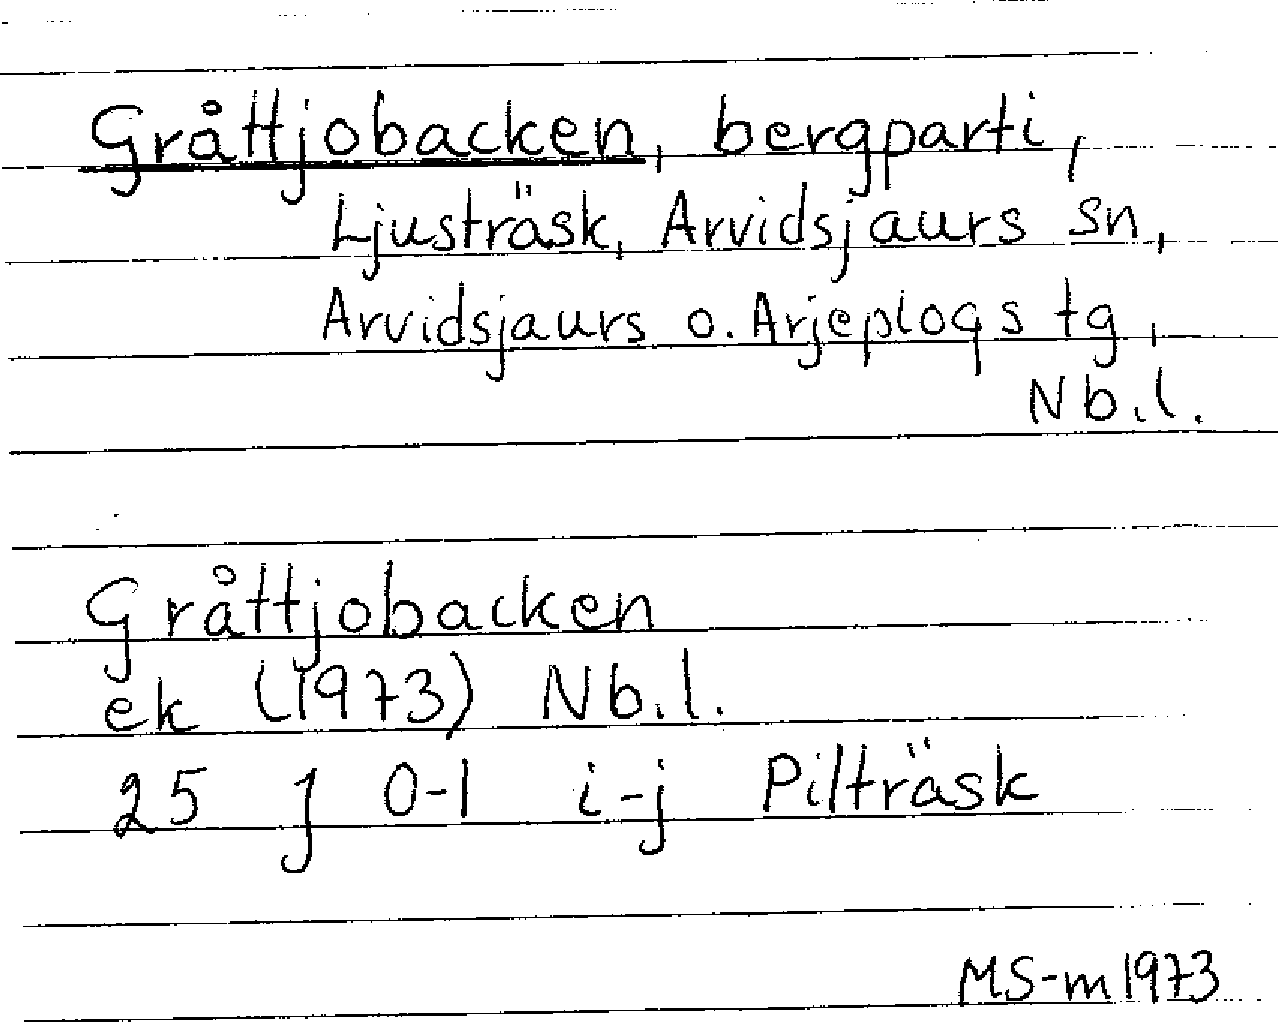 Gråttjobacken, bergparti,
Ljusträsk, Arvidsjaurs sn,
Arvidsjaurs o. Arjeplogs tg,
Nb.l.
Gråttjobacken
ek (1973) Nb.l.
25 J 0-1 i-j Pilträsk
MS-m 1973